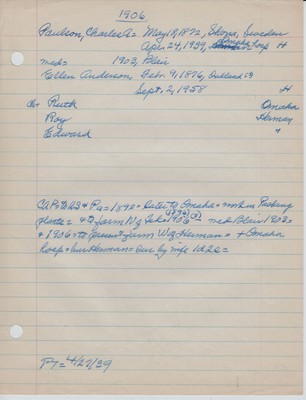 1906
Paulson, Charles A = May 18, 1872, Skona, Sweden
Apr. 24, 1939, Omaha Hosp H
med = 1902, Blair
Ellen Anderson, Febr. 9, 1876, Oakland
Sept. 2, 1958 H
ch Ruth Omaha
Roy Herman
Edward "
CAP = to US & Pa = 1890 = later to Omaha = in Packing
plants = + to farm W of Tek = 1902 med Blair 1902 =
+ 1906 = to present farm W of Herman = + Omaha
hosp = bur Herman = sur by wife 1d 2s =
PT = 4/27/39